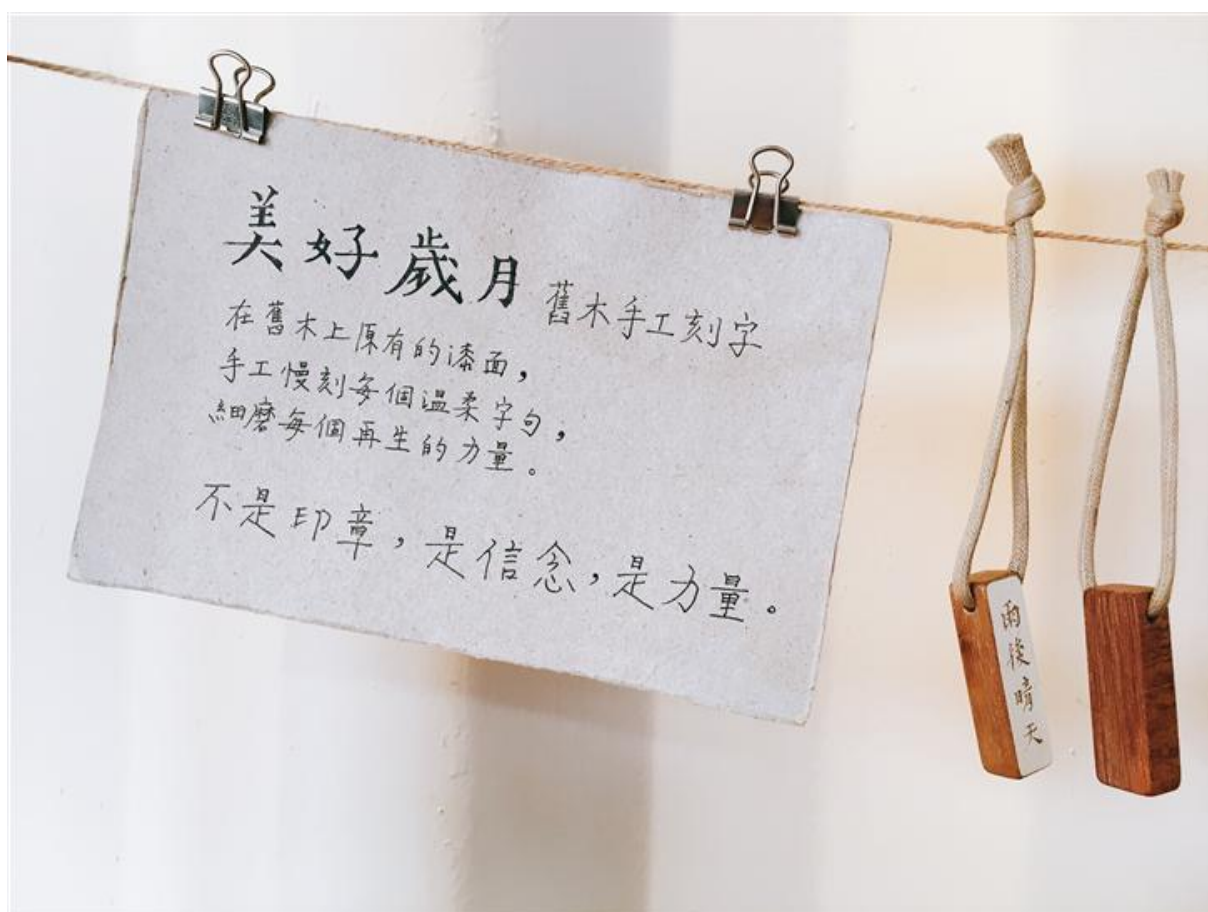 美好歲月 舊木手工刻字
在舊木上原有的漆面，
手工慢刻每個溫柔字句，
細磨每個再生的力量。
不是印章，是信念，是力量。
雨後晴天